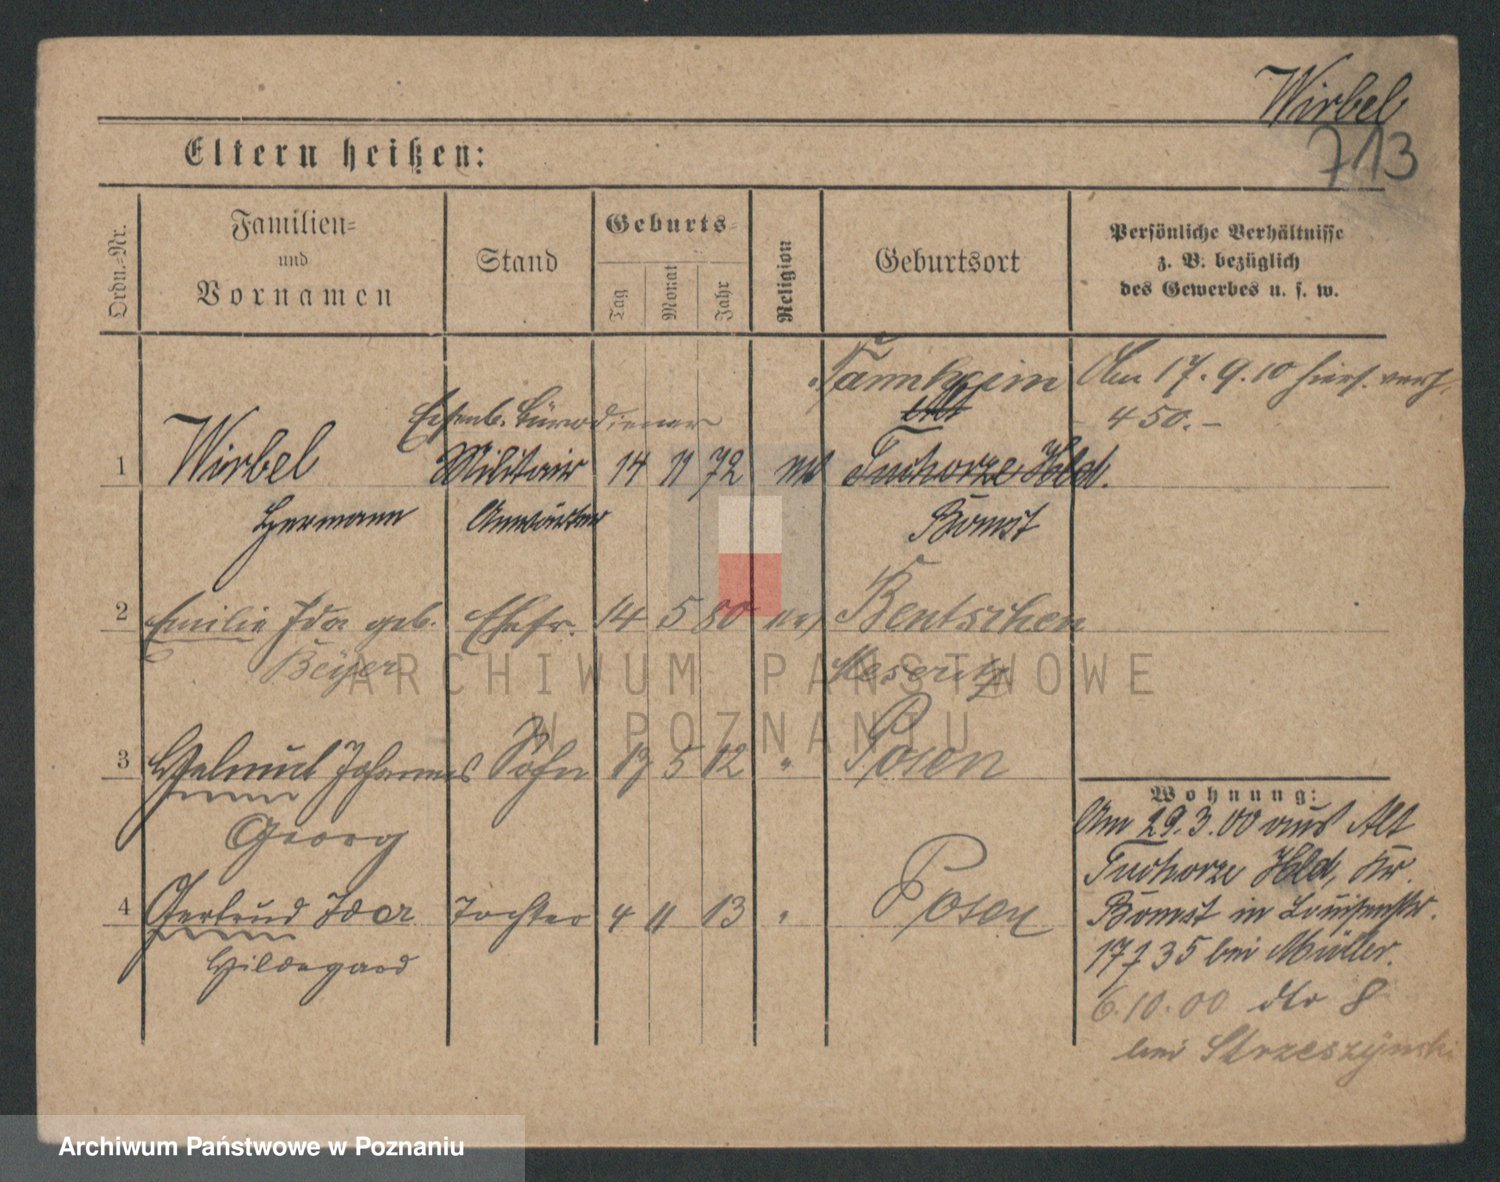 Wirbel
713
Eltern heißen:
Ordn.-Nr.
Familien-
und
Vornamen
Stand
Geburts-
Tag
Monat
Jahr
Religion
Geburtsort
Persönliche Verhältnisse
z. B. bezüglich
des Gewerbes u. s. w.
Tannheim
Am 17. 9. 10 hies. verh.
Eisenb. Bürodiener
Alt
450.-
1 Wirbel Militair 14 11 72 Tuchorze Hld.
Hermann Anwärter Bomst
2 Emilie Ida geb. Ehefr. 14 5 80 Bentschen
Beyer Meseritz
3 Helmut Johannes Sohn 17 5 12 " Posen
Georg
Wohnung:
Am 29. 3. 00 aus Alt
Tuchorze Hld, Kr.
4 Gertrud Ida Tochter 4 11 13 " Posen
Bomst in Louisenstr.
Hildegard
17 735 bei Müller.
6. 10. 00 dto 8
bei Strzeszynski
ARCHIWUM PAŃSTWOWE
W POZNANIU
Archiwum Państwowe w Poznaniu